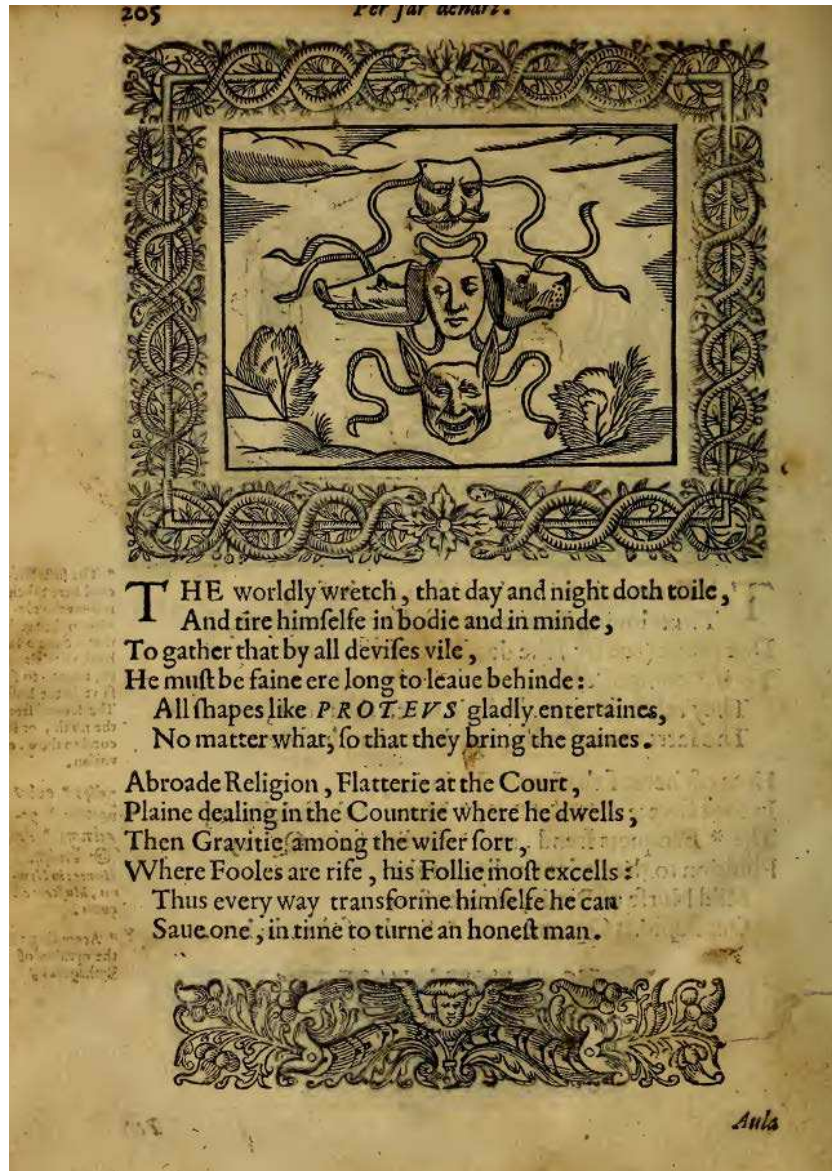 205
Per far denari.
THE worldly wretch, that day and night doth toile,
And tire himſelfe in bodie and in minde,
To gather that by all deviſes vile,
He muſt be faine ere long to leaue behinde:
All ſhapes like PROTEVS gladly entertaines,
No matter what, ſo that they bring the gaines.
Abroade Religion, Flatterie at the Court,
Plaine dealing in the Countrie where he dwells,
Then Gravitie among the wiſer ſort,
Where Fooles are rife, his Follie moſt excells:
Thus every way transforme himſelfe he can
Saue one, in time to turne an honeſt man.
Aula